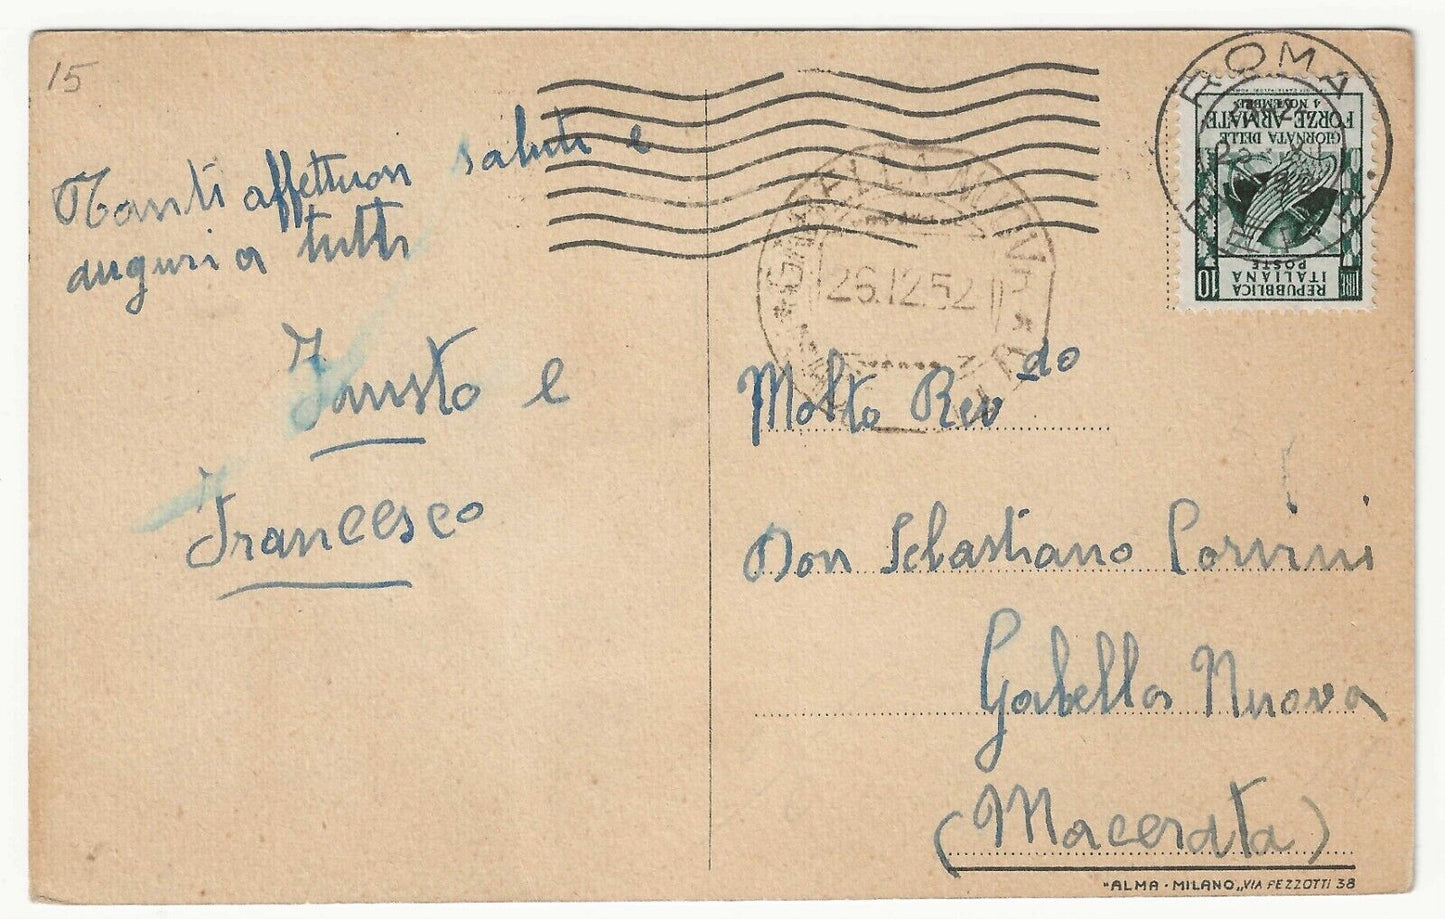 15
Tanti affettuosi saluti e
auguri a tutti
Fausto e
Francesco
ROMA
GIORNATA DELLE
FORZE ARMATE
4 NOVEMBRE
REPUBBLICA
ITALIANA
POSTE
LIRE 10
26.12.52
Molto Rev do
Don Sebastiano Corvini
Gabella Nuova
(Macerata)
"ALMA - MILANO„ VIA PEZZOTTI 38